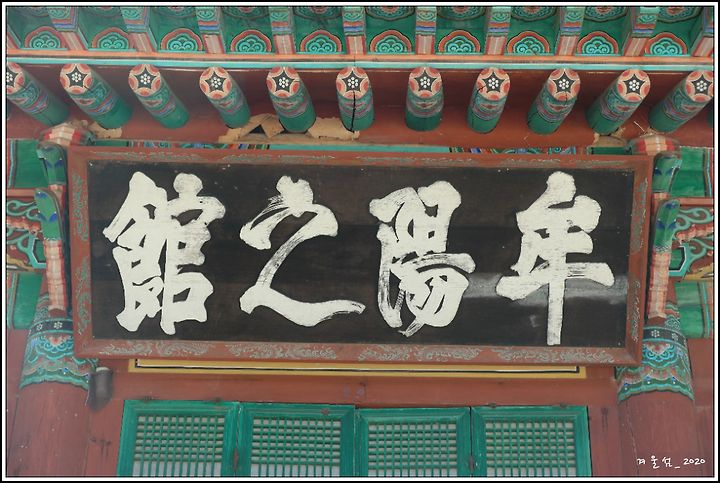 牟陽之館
겨울섬_2020